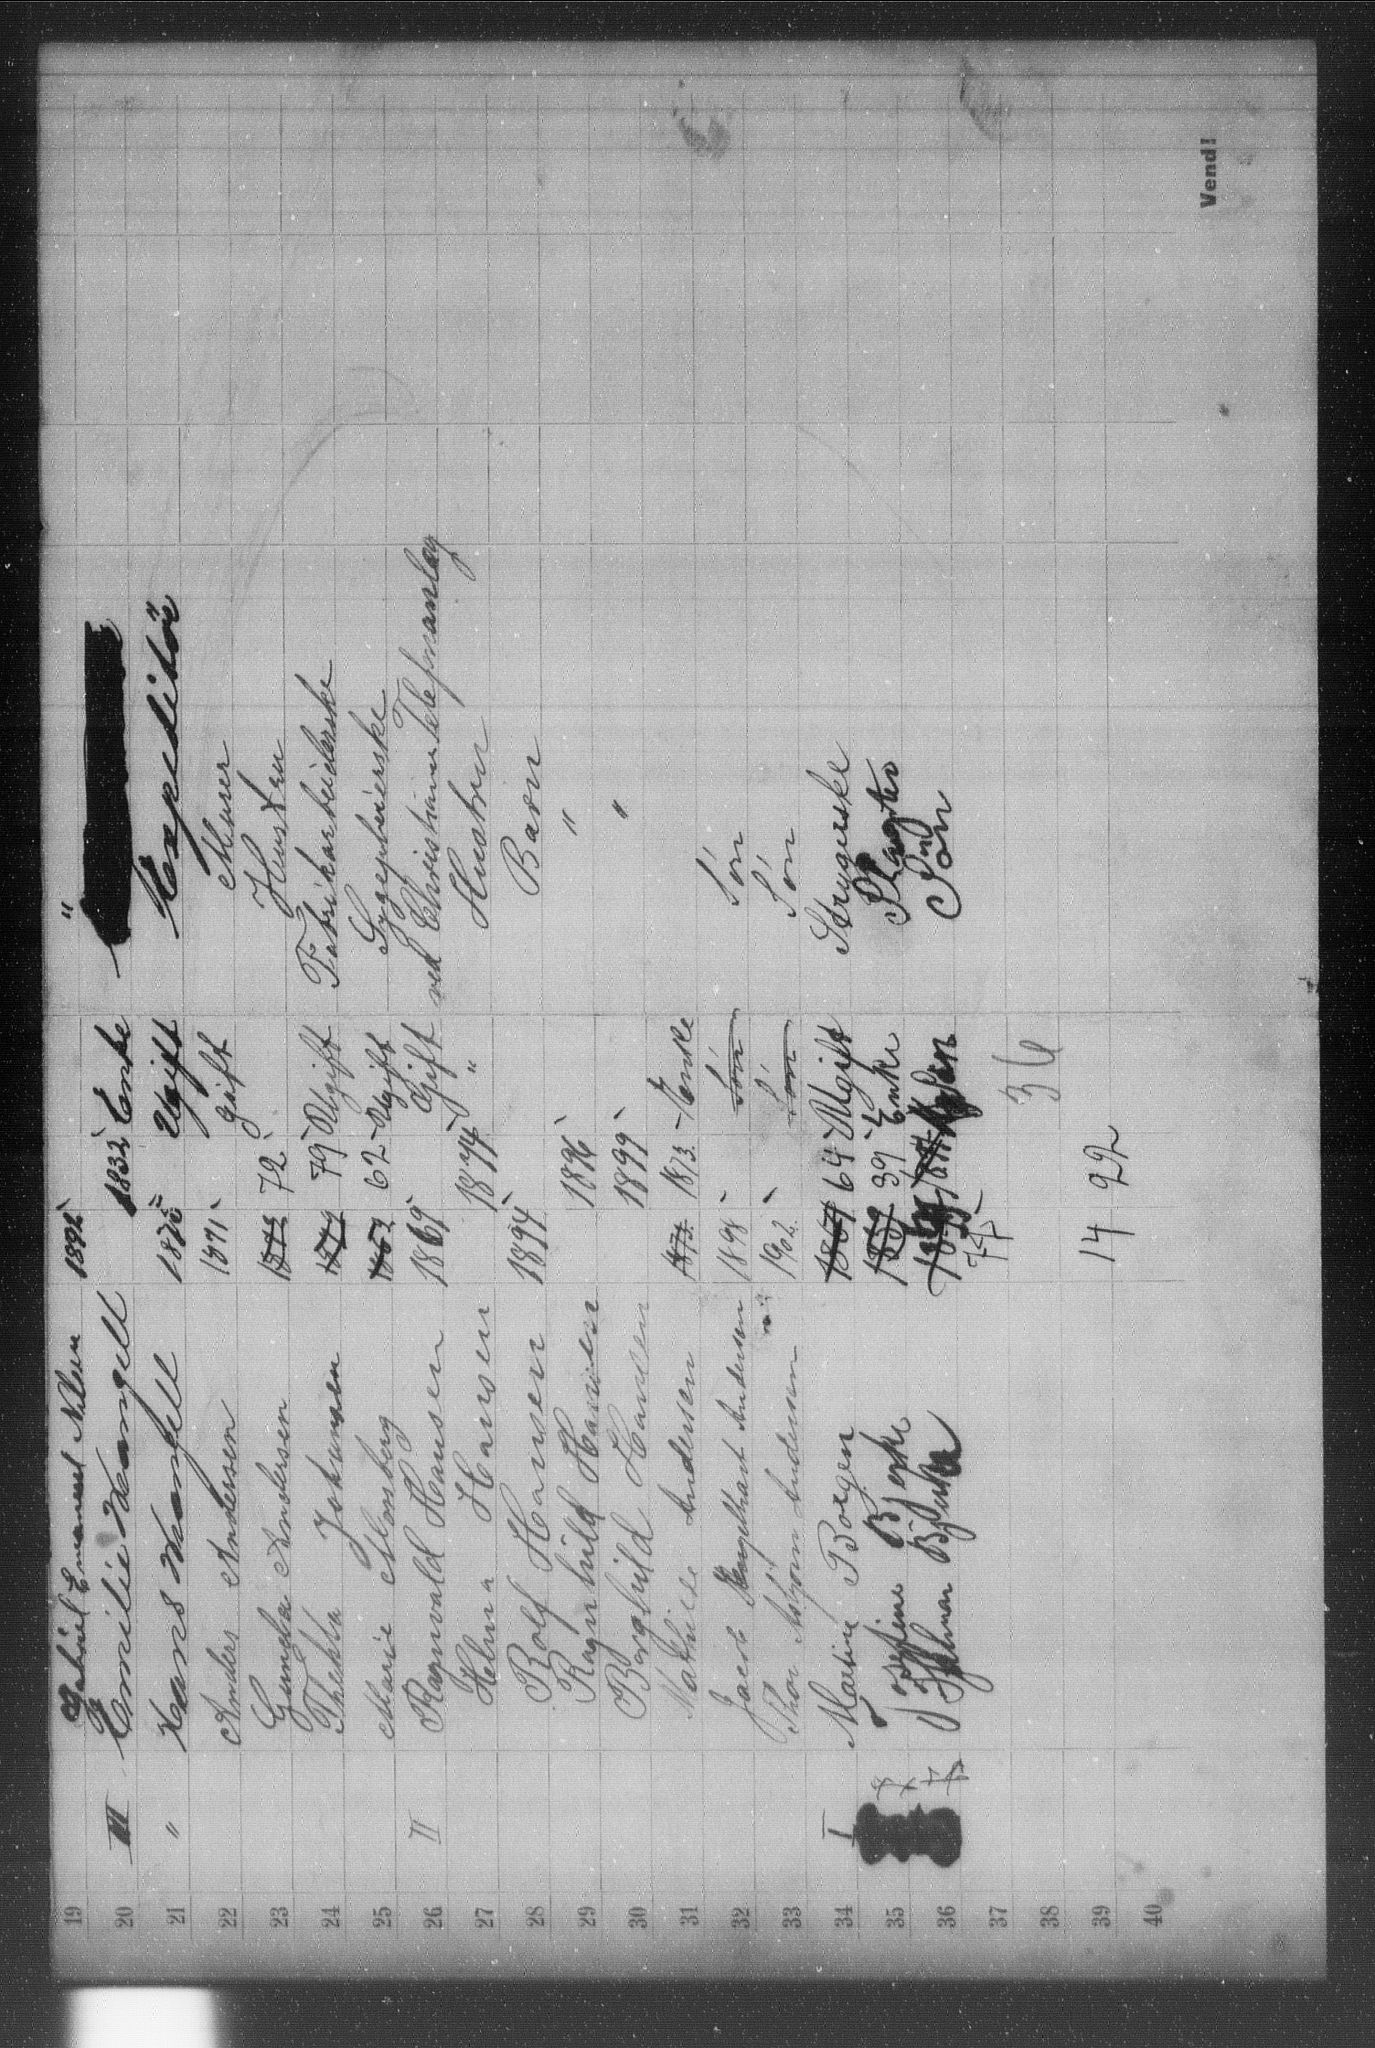 19 Gabriel Emanuel Nilsen 1892 "
20 III Emilie Wangell 1832 Enke
21 " Hans Wangell Ugift Expeditör
22 Anders Andersen 1871 gift Murer
23 Gunda Andersen 72 Hustru
24 Thekla Johansen 1879 79 Ugift Fabrikarbeiderske
25 Marie Monsberg 62 Ugift Sygepleierske
26 II Ragnvald Hansen 1869 Gift ved Christiania Telefonanlæg
27 Helma Hansen 1874 " Hustru
28 Rolf Hansen 1894 Barn
29 Ragnhild Hansen 1896 "
30 Borghild Hansen 1899 "
31 Mathilde Andersen 1873. 1873. Enke
32 Engelhart Andersen 1898 Søn Søn
33 Thor Asbjørn Andersen 1902. Søn Søn
34 I Martine Borgen 64 Ugift Strygerske
35 Josefine Bjerke 1839 39 Enke
36 Hjalmar Bjerke Søn
37
38 36
39
40 14 22
Vend!